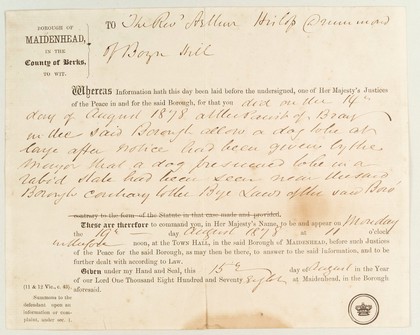 BOROUGH OF
MAIDENHEAD,
IN THE
County of Berks,
TO WIT.
TO The Revd Arthur Hislop Drummond
of Boyn Hill
Whereas Information hath this day been laid before the undersigned, one of Her Majesty's Justices
of the Peace in and for the said Borough, for that you did on the 14th
day of August 1878 at the Parish of Bray
in the said Borough allow a dog to be at
large after notice had been given by the
Mayor that a dog presumed to be in a
rabid state had been seen near the said
Borough contrary to the Bye Laws of the said Boro'
contrary to the form of the Statute in that case made and provided.
These are therefore to command you, in Her Majesty's Name, to be and appear on Monday
the 19th day August 1878 at 11 o'clock
in the fore noon, at the TOWN HALL, in the said Borough of MAIDENHEAD, before such Justices
of the Peace for the said Borough, as may then be there, to answer to the said Information, and to be
further dealt with according to Law.
Given under my Hand and Seal, this 15th day of August in the Year
of our Lord One Thousand Eight Hundred and Seventy Eight at Maidenhead, in the Borough
aforesaid.
(11 & 12 Vic., c. 43)
Summons to the
defendant upon an
information or com-
plaint, under sec. 1.